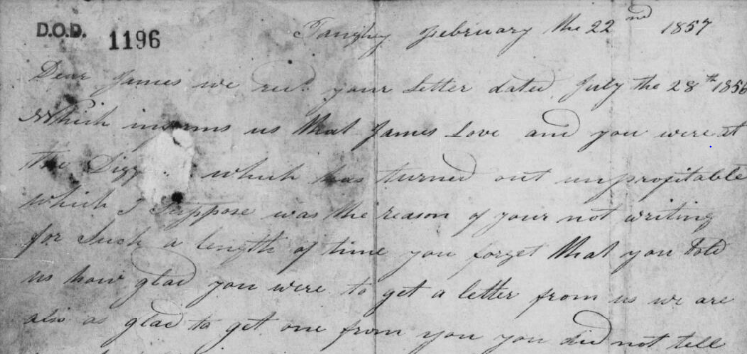 D.O.D. 1196
Tanghy February the 22nd 1857
Dear James we recd your Letter dated July the 28th 1856
Which informs us that James Love and you were at
the which has turned out unprofitable
which I Suppose was the reason of your not writing
for Such a length of time you forget that you told
us how glad you were to get a letter from us we are
also as glad to get one from you you did not tell